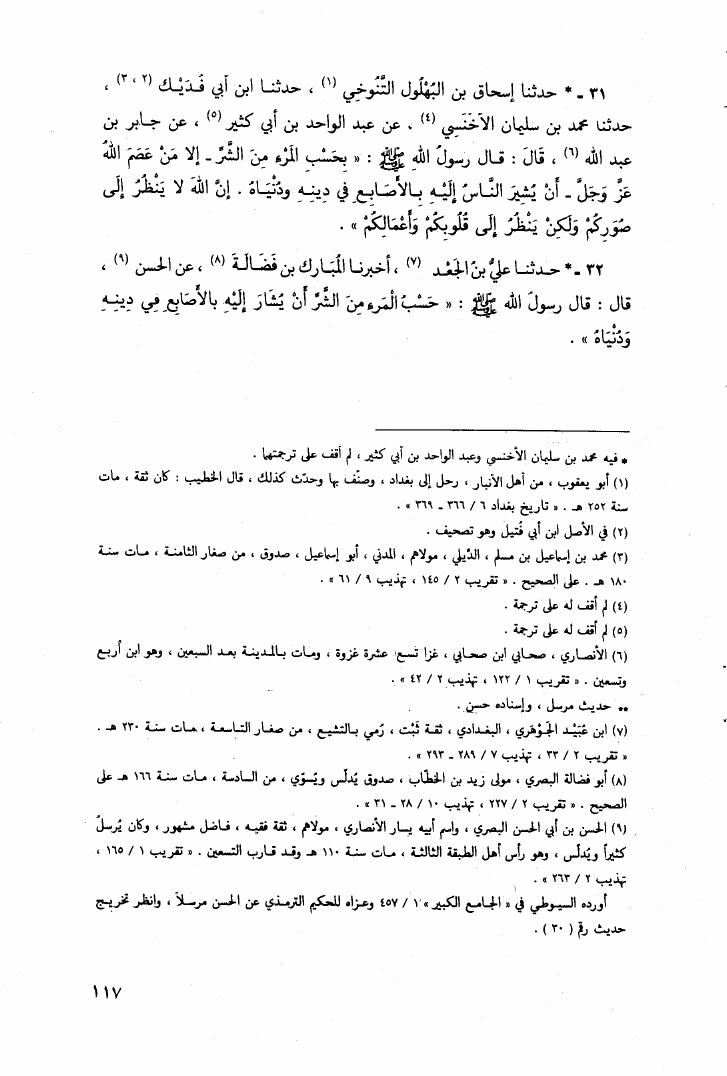 ٣١ ـ * حدثنا إسحاق بن البُهْلُول التَّنُوخي (١) ، حدثنا ابن أبي فُدَيْك (٢ ، ٣) ،
حدثنا محمد بن سليمان الأخْنَسي (٤) . عن عبد الواحد بن أبي كثير (٥) ، عن جابر بن
عبد الله (٦) ، قَالَ : قال رسولُ اللهِ ﷺ : « بِحَسْبِ المَرْءِ مِنَ الشَّرِّ ـ إلا مَنْ عَصَمَ اللهُ
عَزَّ وَجَلَّ ـ أَنْ يُشيرَ النَّاسُ إلَيْهِ بِالأصَابِعِ في دِينِهِ ودُنْيَاهُ . إنَّ اللهَ لا يَنْظُرُ إلَى
صُوَرِكُمْ وَلكِنْ يَنْظُرُ إلى قُلُوبِكُمْ وَأَعْمَالِكُمْ » .
٣٢ ـ * حدثنا عليُّ بنُ الجَعْد (٧) ، أخبرنا المُبَارك بن فَضَالَةَ (٨) ، عن الحسن (٩) ،
قال : قال رسولُ الله ﷺ : « حَسْبُ الْمَرءِ مِنَ الشَّرِّ أَنْ يُشَارَ إلَيْهِ بالأصَابِعِ فِي دِينِهِ
وَدُنْيَاهُ » .
* فيه محمد بن سليمان الأخنسي وعبد الواحد بن أبي كثير ، لم أقف على ترجمتهما .
(١) أبو يعقوب ، من أهل الأنبار ، رحل إلى بغداد ، وصنّف بها وحدّث كذلك ، قال الخطيب : كان ثقة ، مات
سنة ٢٥٢ هـ . « تاريخ بغداد ٦ / ٣٦٦ ـ ٣٦٩ » .
(٢) في الأصل ابن أبي فُتيل وهو تصحيف .
(٣) محمد بن إسماعيل بن مسلم ، الدِّيلي ، مولاهم ، المدني ، أبو إسماعيل ، صدوق ، من صغار الثامنة ، مات سنة
١٨٠ هـ . على الصحيح . « تقريب ٢ / ١٤٥ ، تهذيب ٩ / ٦١ » .
(٤) لم أقف له على ترجمة .
(٥) لم أقف له على ترجمة .
(٦) الأنصاري ، صحابي ابن صحابي ، غزا تسع عشرة غزوة ، ومات بالمدينة بعد السبعين ، وهو ابن أربع
وتسعين . « تقريب ١ / ١٢٢ ، تهذيب ٢ / ٤٢ » .
** حديث مرسل ، وإسناده حسن .
(٧) ابن عُبَيْد الجَوْهَري ، البغدادي ، ثقة ثَبْت ، رُمي بالتشيع ، من صغار التاسعة ، مات سنة ٢٣٠ هـ .
« تقريب ٢ / ٣٣ ، تهذيب ٧ / ٢٨٩ ـ ٢٩٣ » .
(٨) أبو فضالة البصري ، مولى زيد بن الخطّاب ، صدوق يُدلّس ويُسوّي ، من السادسة ، مات سنة ١٦٦ هـ على
الصحيح . « تقريب ٢ / ٢٢٧ ، تهذيب ١٠ / ٢٨ ـ ٣١ » .
(٩) الحسن بن أبي الحسن البصري ، واسم أبيه يسار الأنصاري ، مولاهم ، ثقة فقيه ، فاضل مشهور ، وكان يُرسل
كثيراً ويُدلّس ، وهو رأس أهل الطبقة الثالثة ، مات سنة ١١٠ هـ وقد قارب التسعين . « تقريب ١ / ١٦٥ ،
تهذيب ٢ / ٢٦٣ » .
أورده السيوطي في « الجامع الكبير » ١ / ٤٥٧ وعزاه للحكيم الترمذي عن الحسن مرسلاً ، وانظر تخريج
حديث رقم ( ٣٠ ) .
١١٧